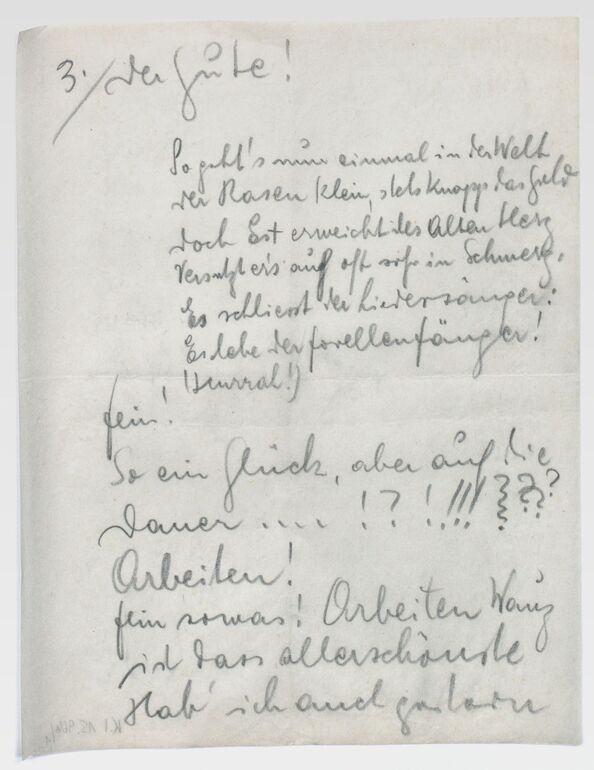 3./ der Gute!
So geht's nun einmal in der Welt
der Rasen klein, stets knapp das Geld
doch Est erweicht des Alten Herz
Versetzt er's auch oft sehr in Schmerz.
Es schliesst der Liedersänger:
Es lebe der Forellenfänger!
(Hurrah!)
fein!
So ein Glück, aber auf die
Dauer .... !?! !!! ???
Arbeiten!
fein sowas! Arbeiten
ist dass allerschönste
Hab' ich auch gestern